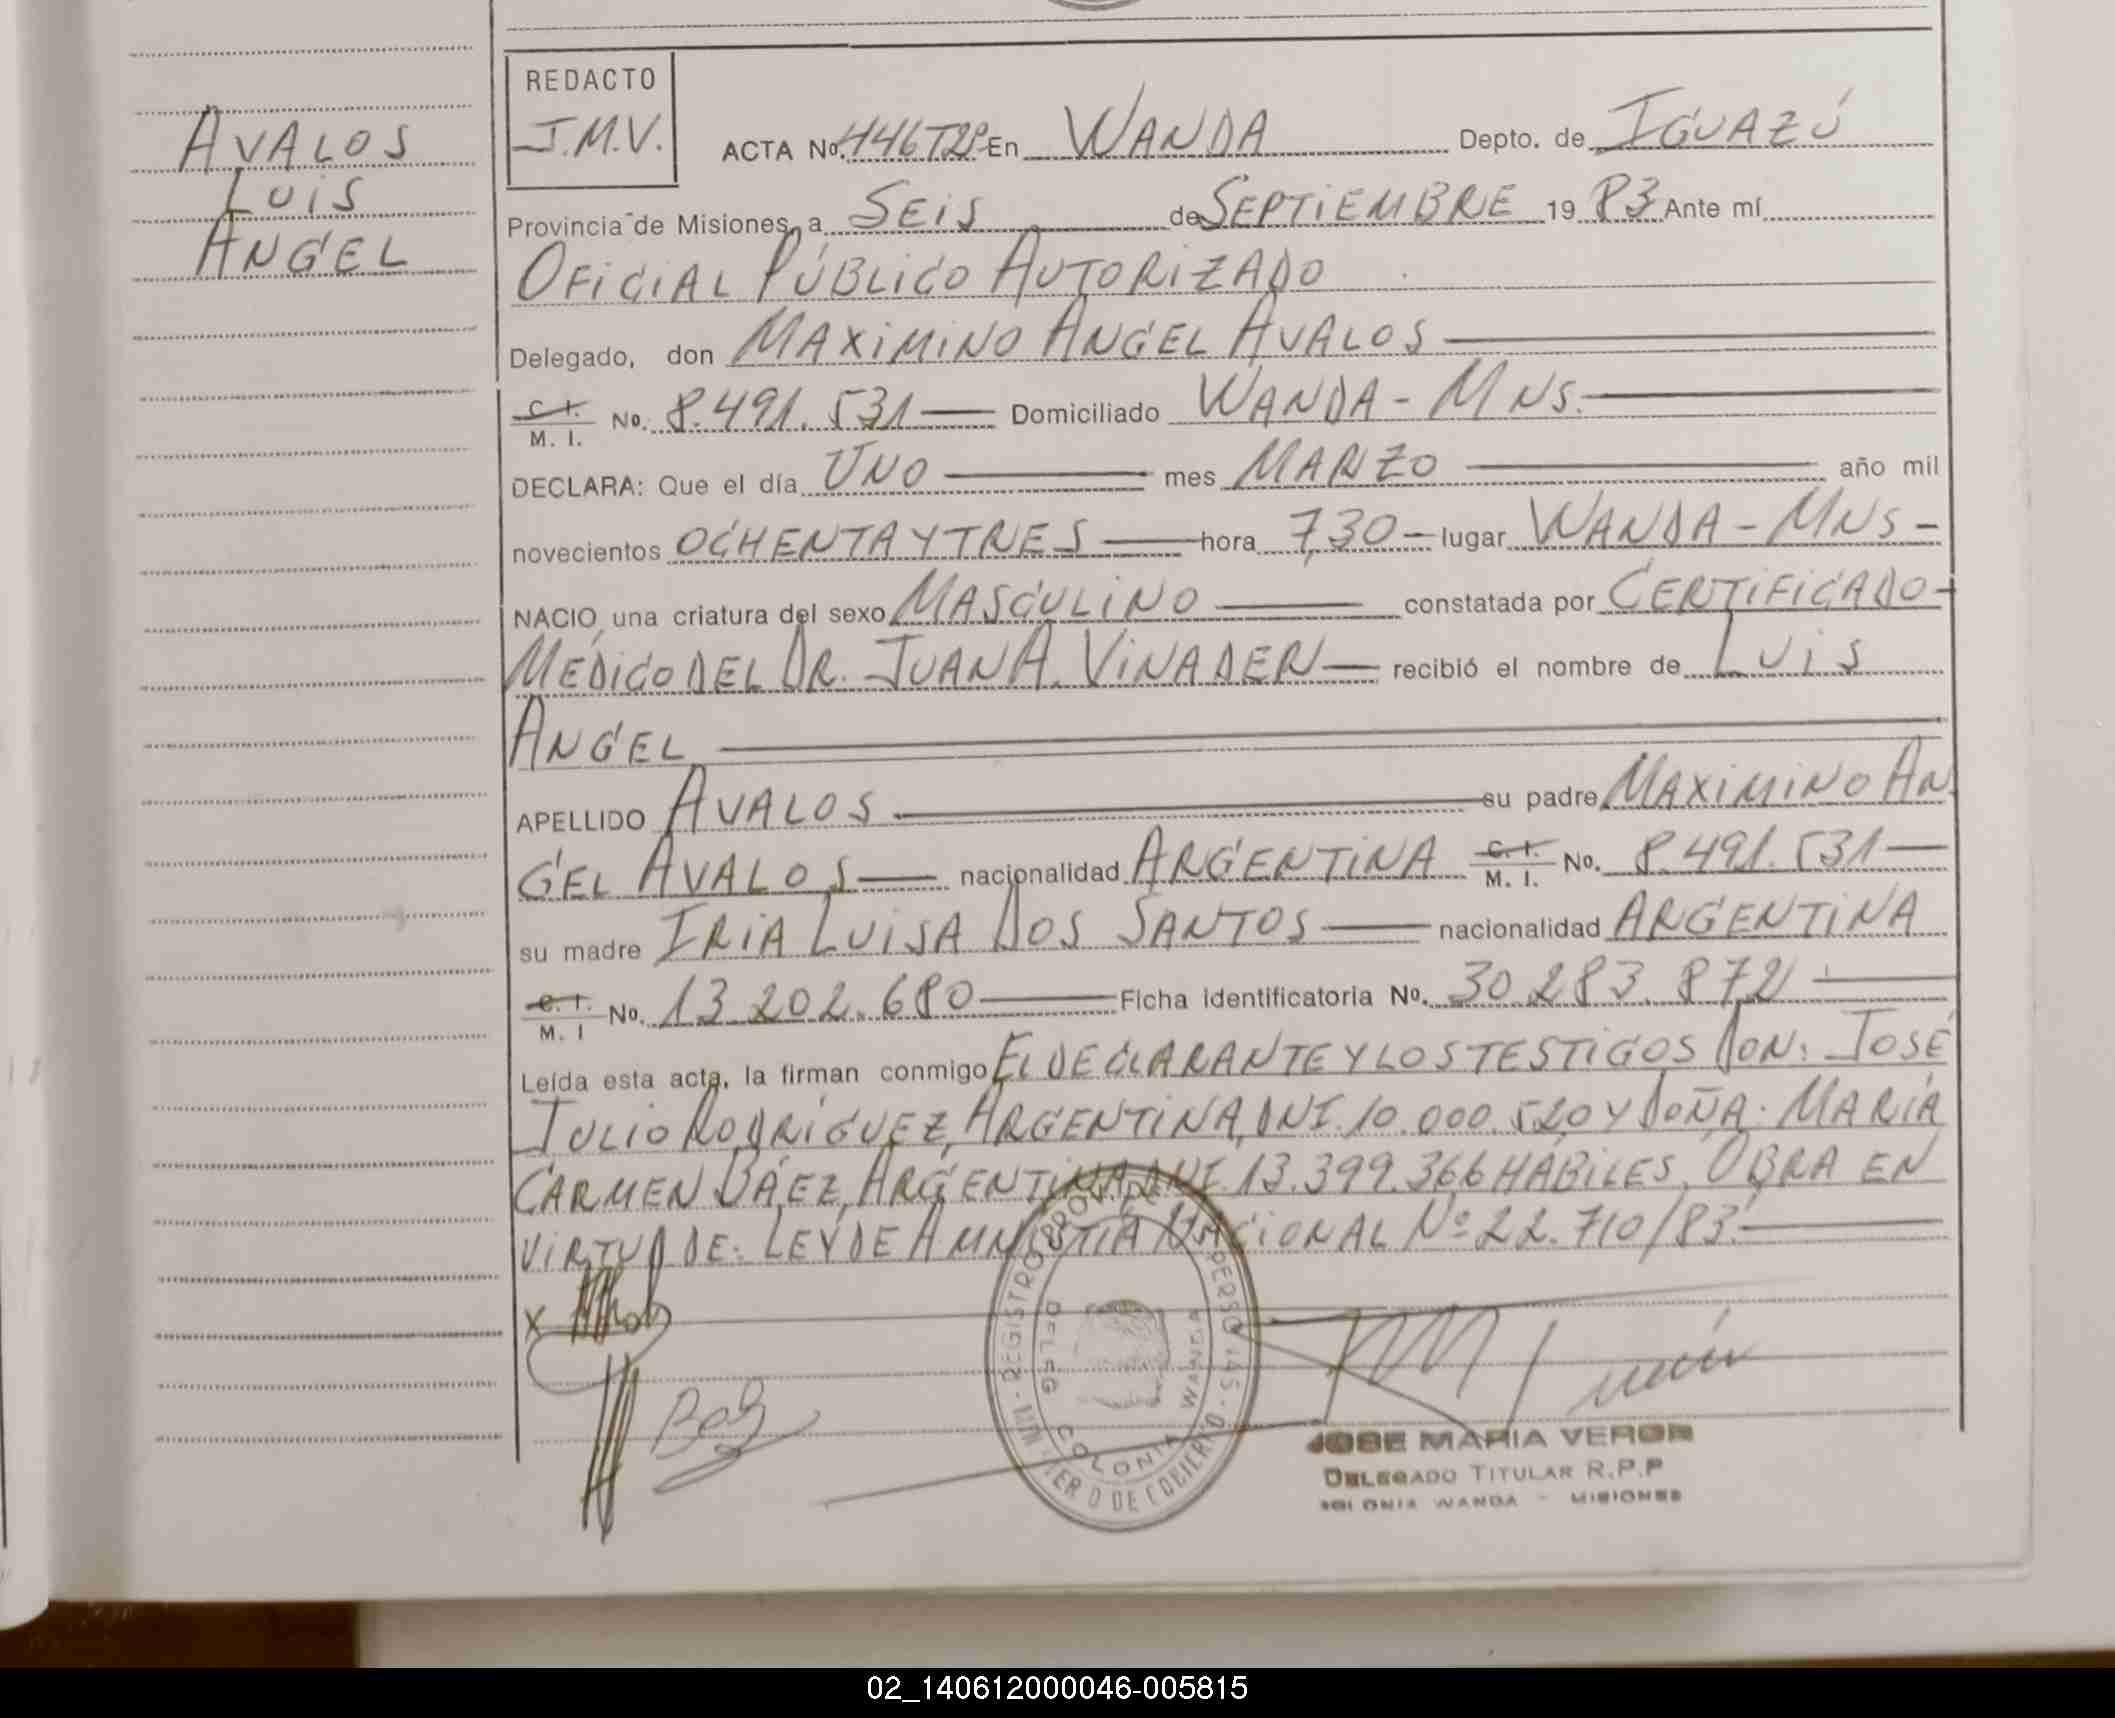 AVALOS
LUIS
ANGEL
REDACTO
J.M.V.
ACTA No. 446 T2º En WANDA Depto. de IGUAZÚ
Provincia de Misiones, a SEIS de SEPTIEMBRE 19 83 Ante mí
OFICIAL PÚBLICO AUTORIZADO
Delegado, don MAXIMINO ANGEL AVALOS
C. I. M. I. No. 8.491.531 Domiciliado WANDA - MNS.
DECLARA: Que el día UNO mes MARZO año mil
novecientos OCHENTA Y TRES hora 7,30 lugar WANDA - MNS -
NACIO, una criatura del sexo MASCULINO constatada por CERTIFICADO
MÉDICO DEL DR. JUAN A. VINADER recibió el nombre de LUIS
ANGEL
APELLIDO AVALOS su padre MAXIMINO AN
GEL AVALOS nacionalidad ARGENTINA C. I. M. I. No. 8.491.531
su madre IRIA LUISA DOS SANTOS nacionalidad ARGENTINA
C. I. M. I No. 13.202.680 Ficha identificatoria No. 30.283.872
Leída esta acta, la firman conmigo EL DECLARANTE Y LOS TESTIGOS DON: JOSÉ
JULIO RODRÍGUEZ, ARGENTINA, DNI. 10.000.520 Y DOÑA: MARÍA
CARMEN BÁEZ, ARGENTINA, DNI. 13.399.366 HÁBILES, OBRA EN
VIRTUD DE: LEY DE AMNISTIA NACIONAL Nº 22.710/83.
X
JOSE MARIA VERON
DELEGADO TITULAR R.P.P
COLONIA WANDA - MISIONES
DELEG COLONIA WANDA
02_140612000046-005815